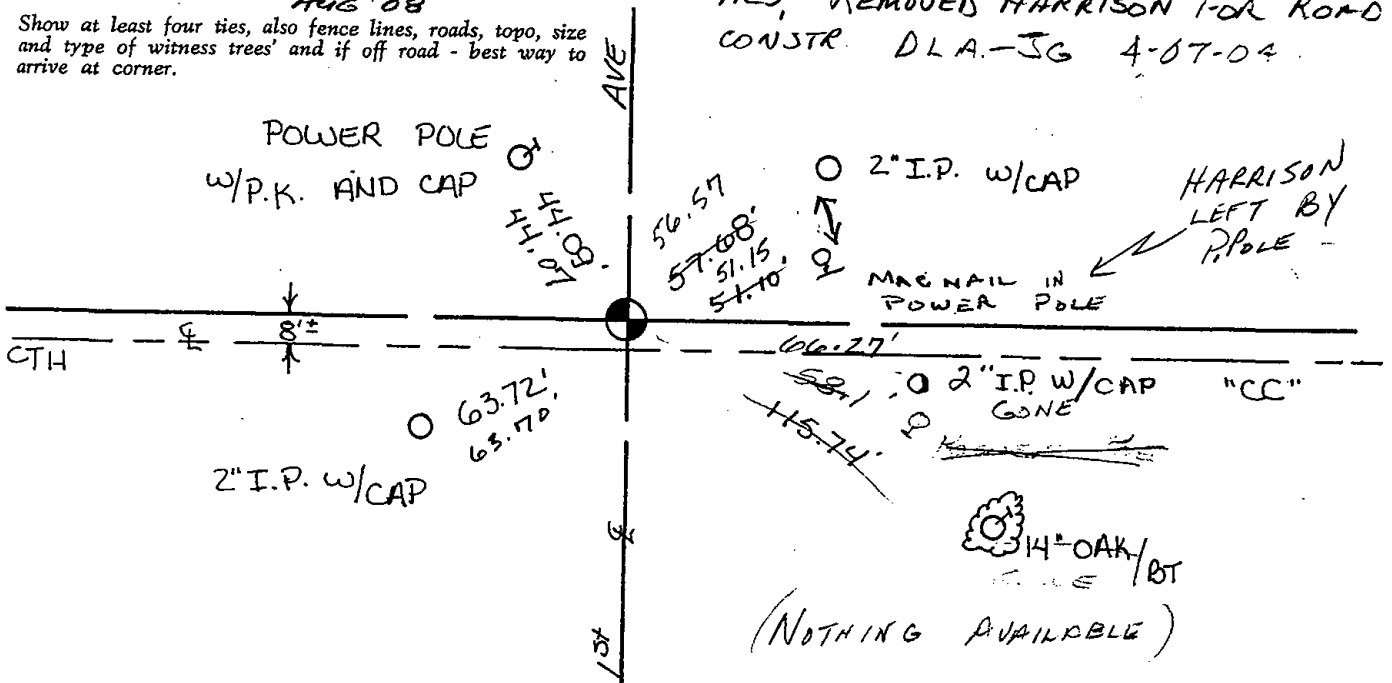 AUG '08
Show at least four ties, also fence lines, roads, topo, size
and type of witness trees' and if off road - best way to
arrive at corner.
REMOVED HARRISON FOR ROAD
CONSTR. DLA.-JG 4-07-04
AVE
POWER POLE
W/P.K. AND CAP
44.08'
44.07
56.57
57.68'
51.15
51.10'
2" I.P. W/CAP
HARRISON
LEFT BY
P.POLE -
MAG NAIL IN
POWER POLE
8'±
CTH
℄
66.27'
58.1
115.74'
2" I.P. W/CAP
GONE
"CC"
63.72'
63.70'
2" I.P. W/CAP
℄
14" OAK/BT
(NOTHING AVAILABLE)
1ST